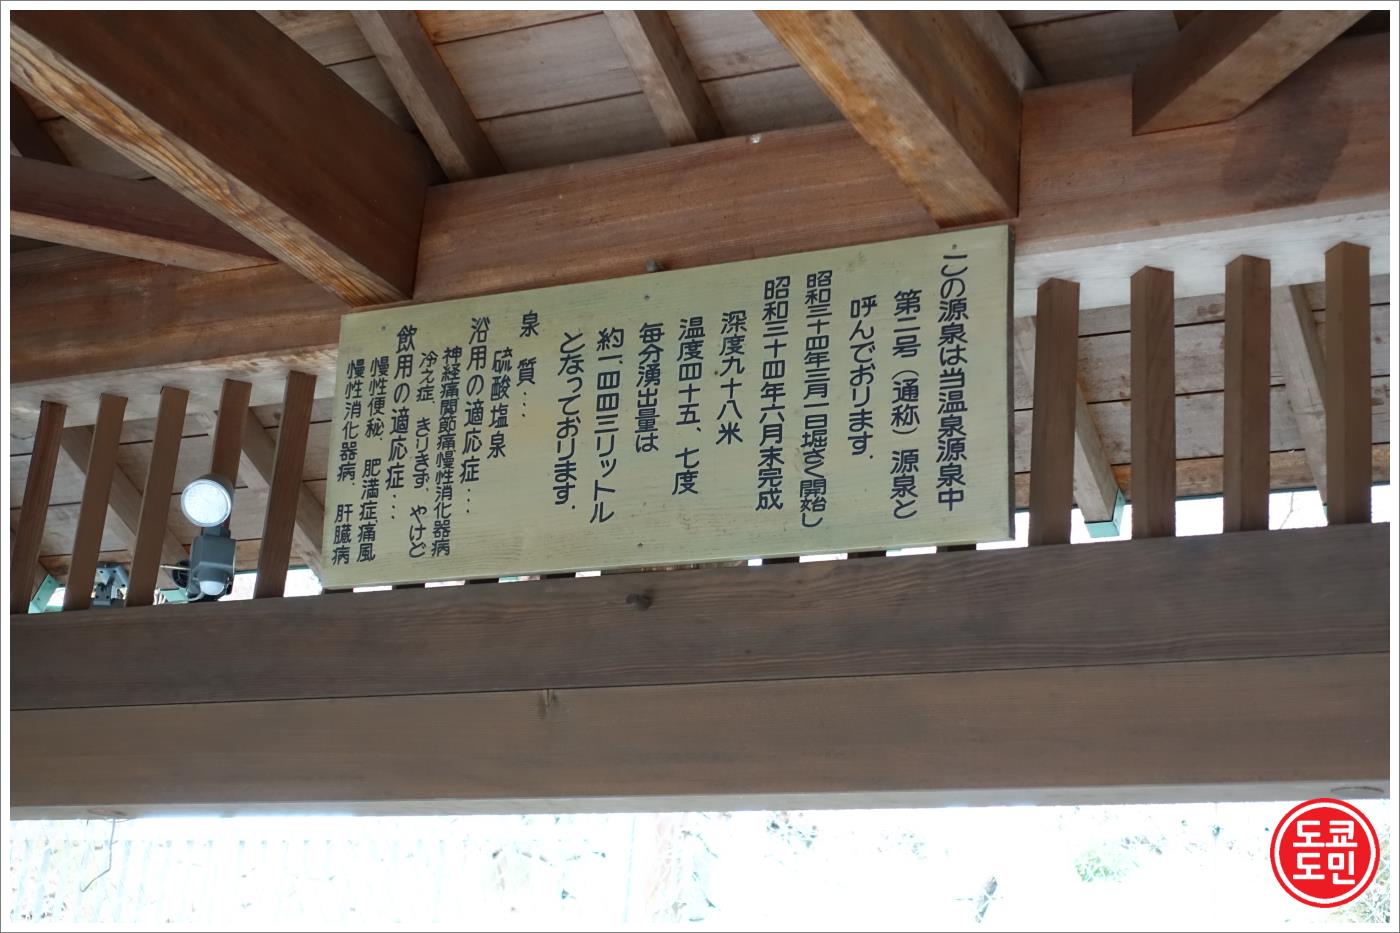 この源泉は当温泉源泉中
第二号（通称）源泉と
呼んでおります.
昭和三十四年三月一日堀さく開始し
昭和三十四年六月末完成
深度九十八米
温度四十五、七度
毎分湧出量は
約一四四三リットル
となっております.
泉質…
硫酸塩泉
浴用の適応症…
神経痛関節痛慢性消化器病
冷え症 きりきず、やけど
飲用の適応症…
慢性便秘、肥満症痛風
慢性消化器病、肝臓病
도쿄
도민